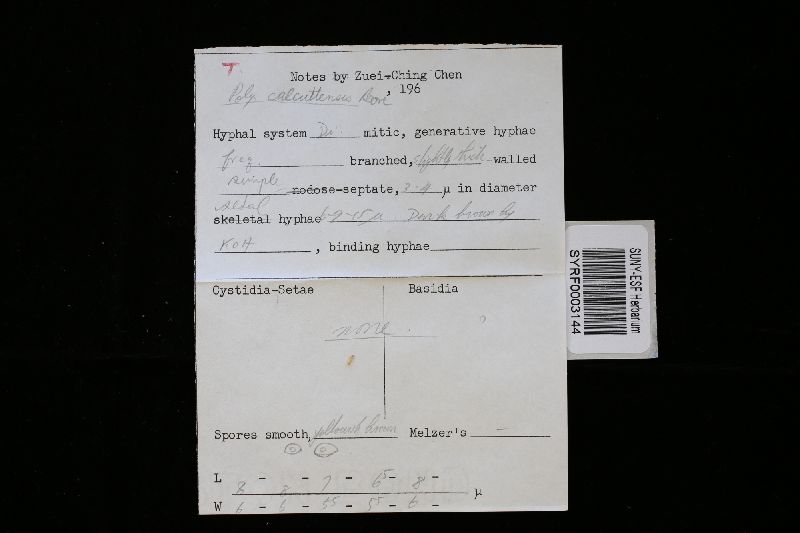 T.
Notes by Zuei-Ching Chen
Polyp calcuttensis Bose, 196
Hyphal system Di mitic, generative hyphae
freq. branched, slightly thick-walled
simple nodose-septate, 2-4 µ in diameter
setal
skeletal hyphae 6-9-15 µ Dark brown by
KOH, binding hyphae
Cystidia-Setae Basidia
none.
Spores smooth, yellowish brown Melzer's -
L 8 - 8 - 7 - 6.5 - 8 -
µ
W 6 - 6 - 5.5 - 5.5 - 6 -
SUNY-ESF Herbarium
SYRF0003144